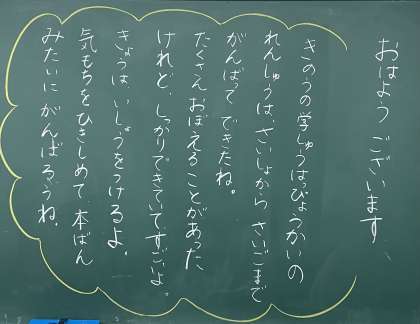 おはよう ございます
きのうの学しゅうはっぴょうかいの
れんしゅうは、さいしょから さいごまで
がんばって できたね。
たくさん おぼえることがあった
けれど、しっかりできていてすごいよ。
きょうは、いしょうをつけるよ。
気もちをひきしめて、本ばん
みたいに がんばろうね。